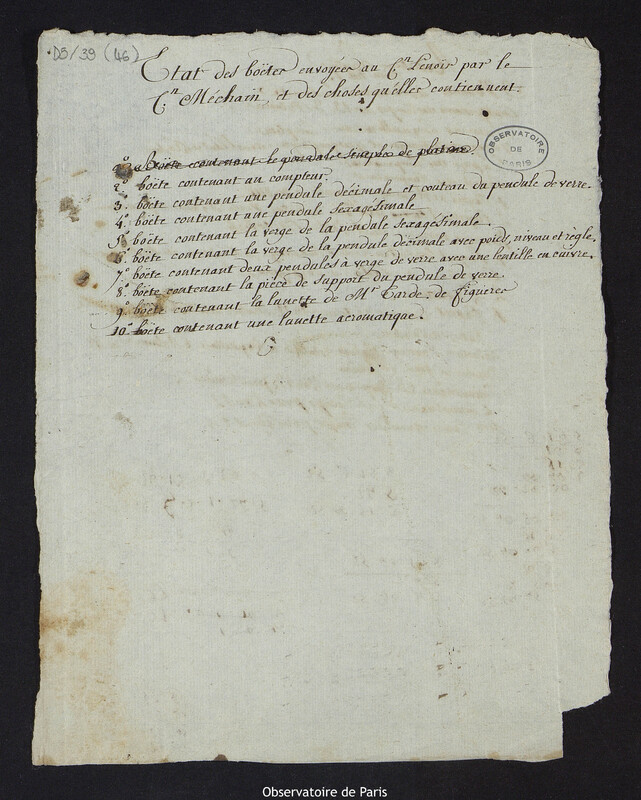 D5/39 (46)
Etat des boëtes envoyées au C.n Lenoir par le
C.n Méchain, et des choses qu'elles contiennent.
OBSERVATOIRE
DE
PARIS
1.o Boëte contenant le pendule simple de platine.
2.o boëte contenant au compteur
3.o boëte contenant une pendule décimale et couteau du pendule de verre.
4.o boëte contenant une pendule sexagésimale
5.o boëte contenant la verge de la pendule sexagésimale
6.o boëte contenant la verge de la pendule décimale avec poids, niveau et règle.
7.o boëte contenant deux pendules à verge de verre avec une lentille en cuivre.
8.o boëte contenant la pièce de support du pendule de verre.
9.o boëte contenant la lunette de M.r Tarde de figueres
10.o boëte contenant une lunette acromatique.
Observatoire de Paris